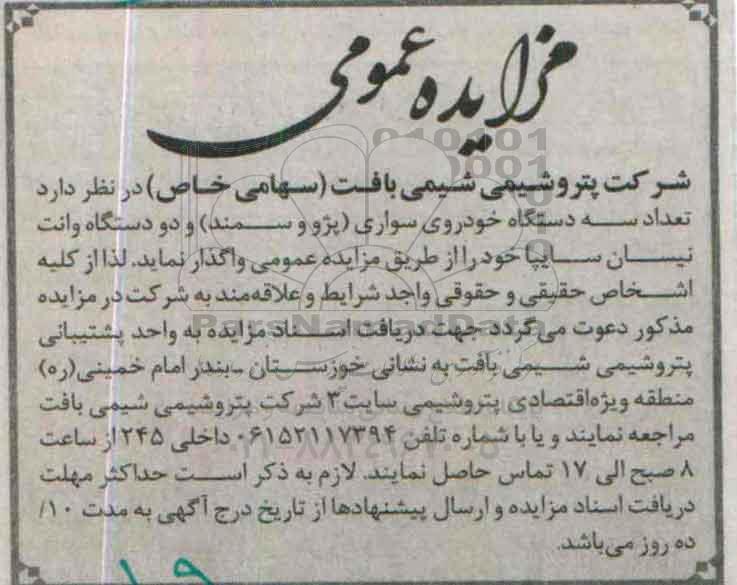 مزایده عمومی
شرکت پتروشیمی شیمی بافت (سهامی خاص) در نظر دارد
تعداد سه دستگاه خودروی سواری (پژو و سمند) و دو دستگاه وانت
نیسان سایپا خود را از طریق مزایده عمومی واگذار نماید. لذا از کلیه
اشخاص حقیقی و حقوقی واجد شرایط و علاقه‌مند به شرکت در مزایده
مذکور دعوت می‌گردد جهت دریافت اسناد مزایده به واحد پشتیبانی
پتروشیمی شیمی بافت به نشانی خوزستان - بندر امام خمینی(ره)
منطقه ویژه اقتصادی پتروشیمی سایت ۳ شرکت پتروشیمی شیمی بافت
مراجعه نمایند و یا با شماره تلفن ۰۶۱۵۲۱۱۷۳۹۴ داخلی ۲۴۵ از ساعت
۸ صبح الی ۱۷ تماس حاصل نمایند. لازم به ذکر است حداکثر مهلت
دریافت اسناد مزایده و ارسال پیشنهادها از تاریخ درج آگهی به مدت ۱۰/
ده روز می‌باشد.
ParsNamadData
۱۹